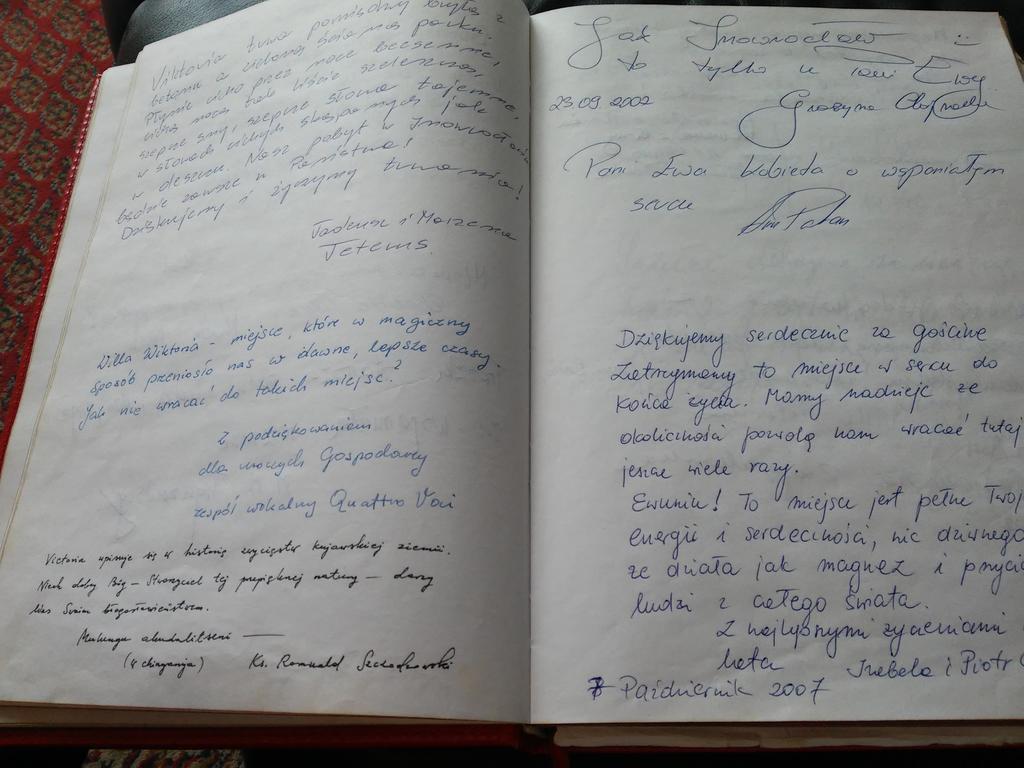 Wiktoria tuwa pomiędzy bryłą z
betonu a zieloną ścianą parku.
Płynie cicho przez noce bezsenne,
nocą liście szeleszczą,
szepcze sny, szepcze słowa tajemne,
w słowach cichych skąpanych jak
w deszczu. Nasz pobyt w Inowrocławiu
będzie zawsze u Państwa!
Dziękujemy i życzymy trwania!
Tadeusz i Marzena
Willa Wiktoria - miejsce, które w magiczny
sposób przeniosło nas w dawne, lepsze czasy.
Jak nie wracać do takich miejsc?
Z podziękowaniem
dla uroczych Gospodarzy
zespół wokalny Quattro Voci
Victoria wpisuje się w historię zwycięstw kujawskiej ziemi.
Niech dobry Bóg - Stworzyciel tej przepięknej natury - darzy
Was Swoim błogosławieństwem.
Ks. Romuald
Jak Inowrocław
to tylko u Pani Ewy
23.09.2002
Grażyna
Pani Ewa kobieta o wspaniałym
sercu
Dziękujemy serdecznie za gościnę
Zatrzymamy to miejsce w sercu do
końca życia. Mamy nadzieję ze
okoliczności pozwolą nam wracać tutaj
jeszcze wiele razy.
Ewuniu! To miejsce jest pełne Twoj
energii i serdeczności, nic dziwnego
że działa jak magnez i przycią
ludzi z całego świata.
Z najlepszymi życzeniami
Izabela i Piotr
Październik 2007